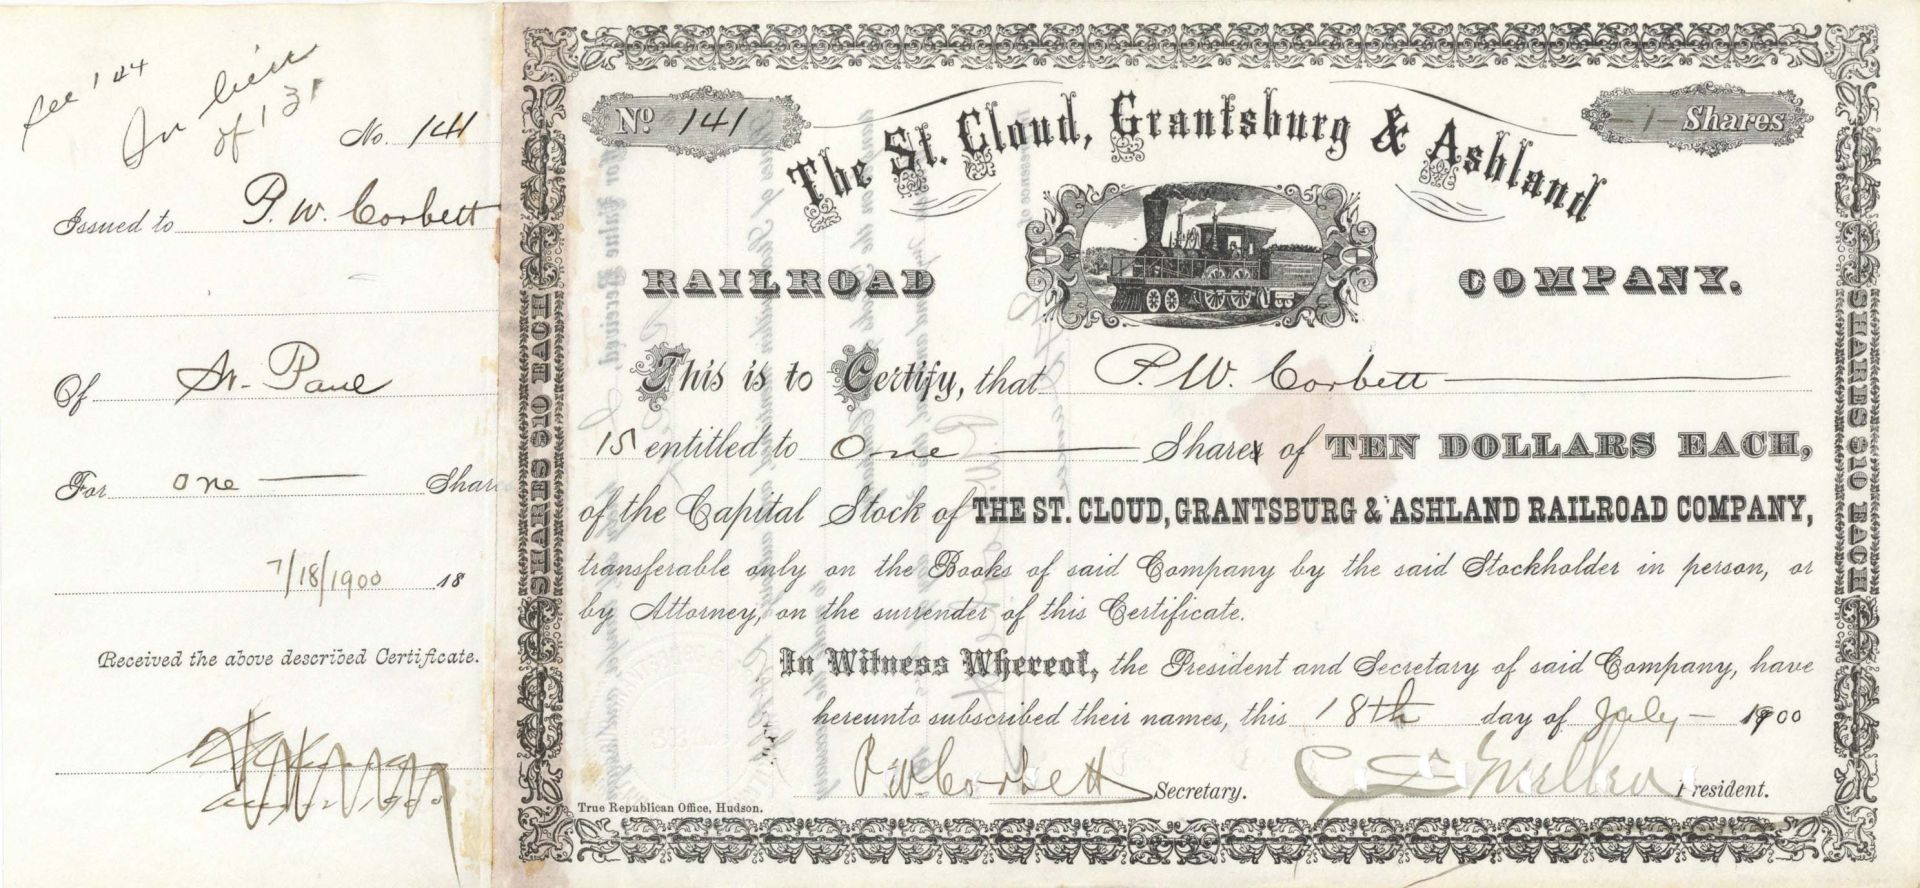 See 144
In lieu
of 131
No. 141
Issued to P. W. Corbett
Of St. Paul
For one Shar
7/18/1900 18
Received the above described Certificate.
No 141
-1- Shares
The St. Cloud, Grantsburg & Ashland
RAILROAD COMPANY.
This is to Certify, that P. W. Corbett
is entitled to One Shares of TEN DOLLARS EACH,
of the Capital Stock of THE ST. CLOUD, GRANTSBURG & ASHLAND RAILROAD COMPANY,
transferable only on the Books of said Company by the said Stockholder in person, or
by Attorney, on the surrender of this Certificate.
In Witness Whereof, the President and Secretary of said Company, have
hereunto subscribed their names, this 18th day of July 1900
P. W. Corbett Secretary. President.
True Republican Office, Hudson.
SHARES $10 EACH
SHARES $10 EACH